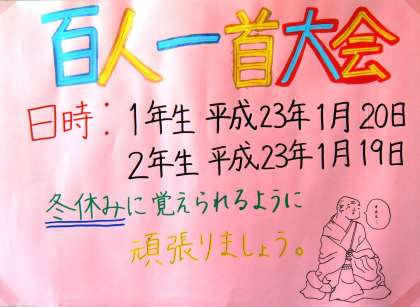 百人一首大会
日時：1年生 平成23年1月20日
2年生 平成23年1月19日
冬休みに覚えられるように
頑張りましょう。